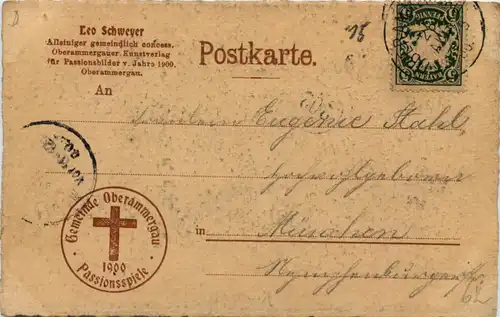 Leo Schweyer
Alleiniger gemeindlich concess.
Oberammergauer Kunstverlag
für Passionsbilder v. Jahre 1900.
Oberammergau.
Postkarte.
15
BAYERN
An
Fräulein Eugenie Stahl
Hochwohlgeboren
in München
Nymphenburger
Gemeinde Oberammergau
1900
Passionsspiele